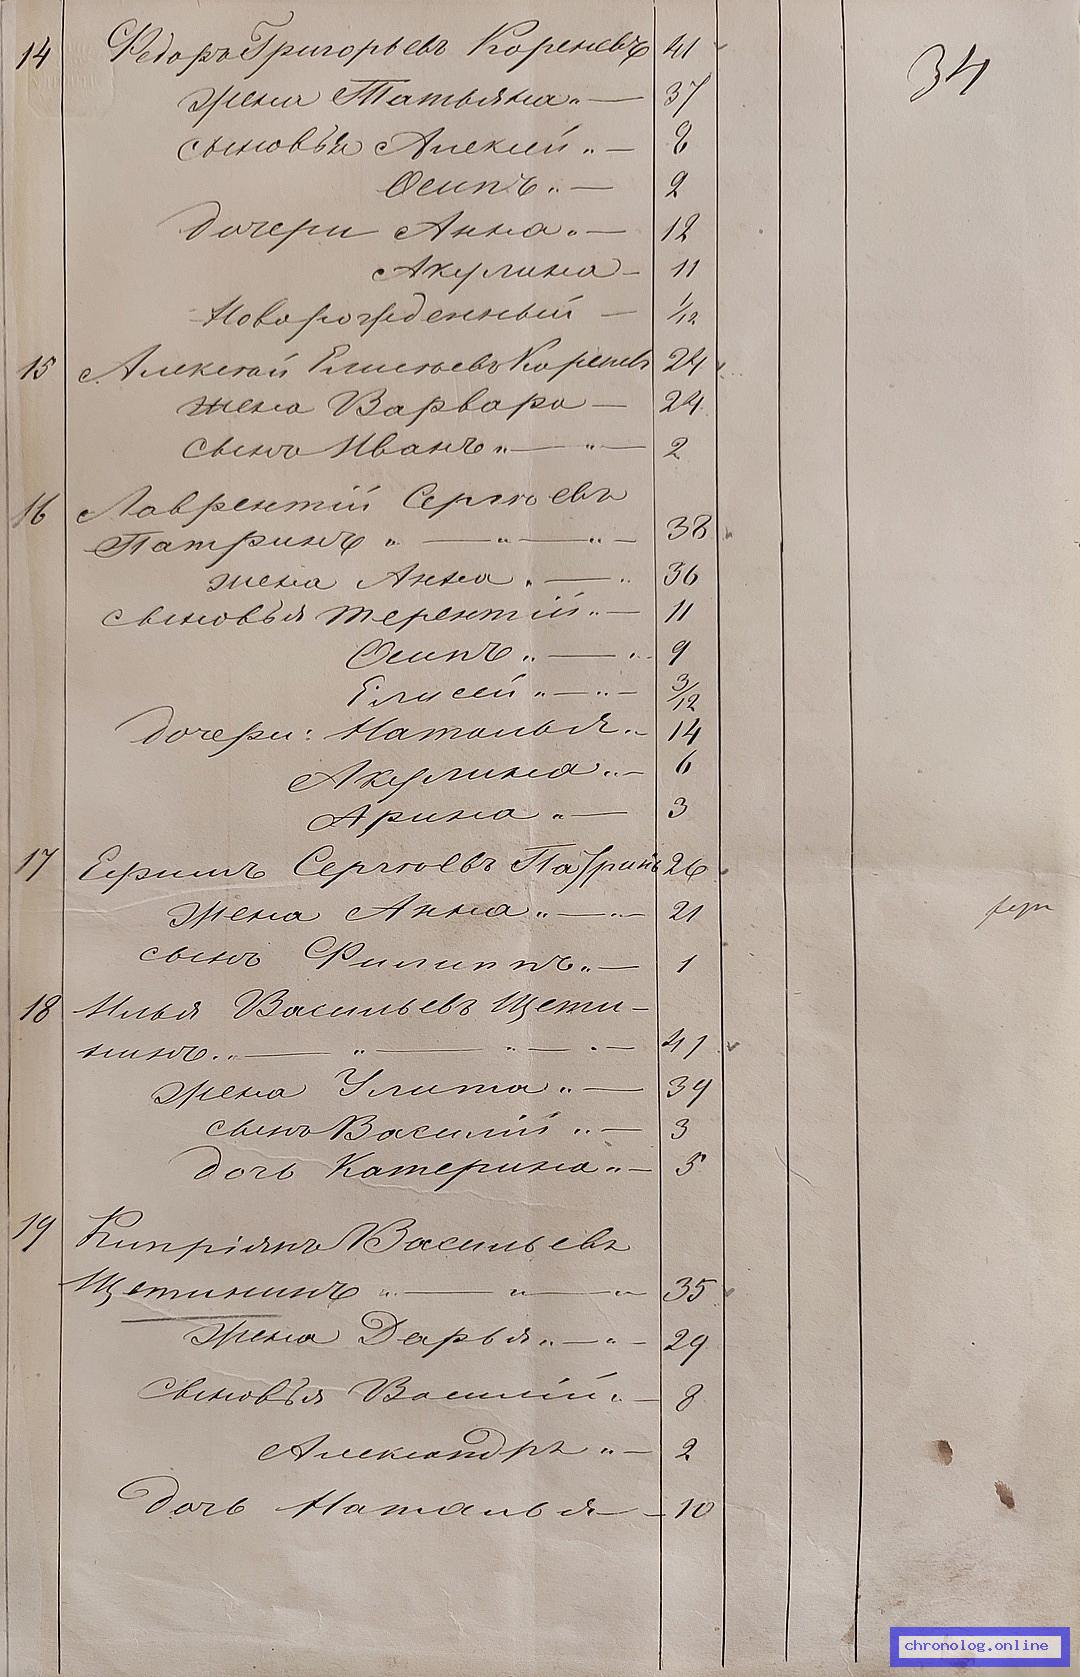 34
14 Федоръ Григорьевъ Кореневъ 41
жена Татьяна „ — 37
сыновья Алексей „ — 8
Осипъ „ — 2
дочери Анна „ — 12
Акулина — 11
Новорожденный — 1/12
15 Алексей Елисѣевъ Кореневъ 24
жена Варвара — 24
сынъ Иванъ „ — „ — 2
16 Лаврентій Сергѣевъ
Патринъ „ — „ — „ — 38
жена Анна „ — „ 36
сыновья Терентій „ — 11
Осипъ „ — „ 9
Елисей „ — „ — 3/12
дочери: Наталья „ 14
Акулина „ — 6
Арина „ — 3
17 Ефимъ Сергѣевъ Патринъ 26
жена Анна „ — „ — 21
сынъ Филиппъ „ — 1
18 Илья Васильевъ Щети-
нинъ „ — „ — „ — „ — 41
жена Улита „ — 39
сынъ Василій „ — 3
дочь Катерина „ — 5
19 Кипріянъ Васильевъ
Щетининъ „ — „ — „ 35
жена Дарья „ — „ — 29
сыновья Василій „ — 8
Александръ „ — 2
дочь Наталья — 10
chronolog.online